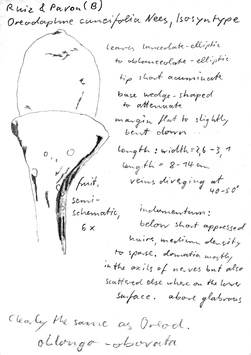 Ruiz & Pavon (B)
Oreodaphne cuneifolia Nees, Isosyntype
Leaves lanceolate-elliptic
to oblanceolate-elliptic
tip short acuminate
base wedge-shaped
to attenuate
margin flat to slightly
bent down
length : width = 2,6 - 3,1
length = 8-14 cm
veins diverging at
40-50°
fruit,
semi-
schematic,
6 x
indumentum:
below short appressed
hairs, medium density
to sparse, domatia mostly
in the axils of nerves but also
scattered elsewhere on the lower
surface. above glabrous
clearly the same as Oreod.
oblongo-obovata